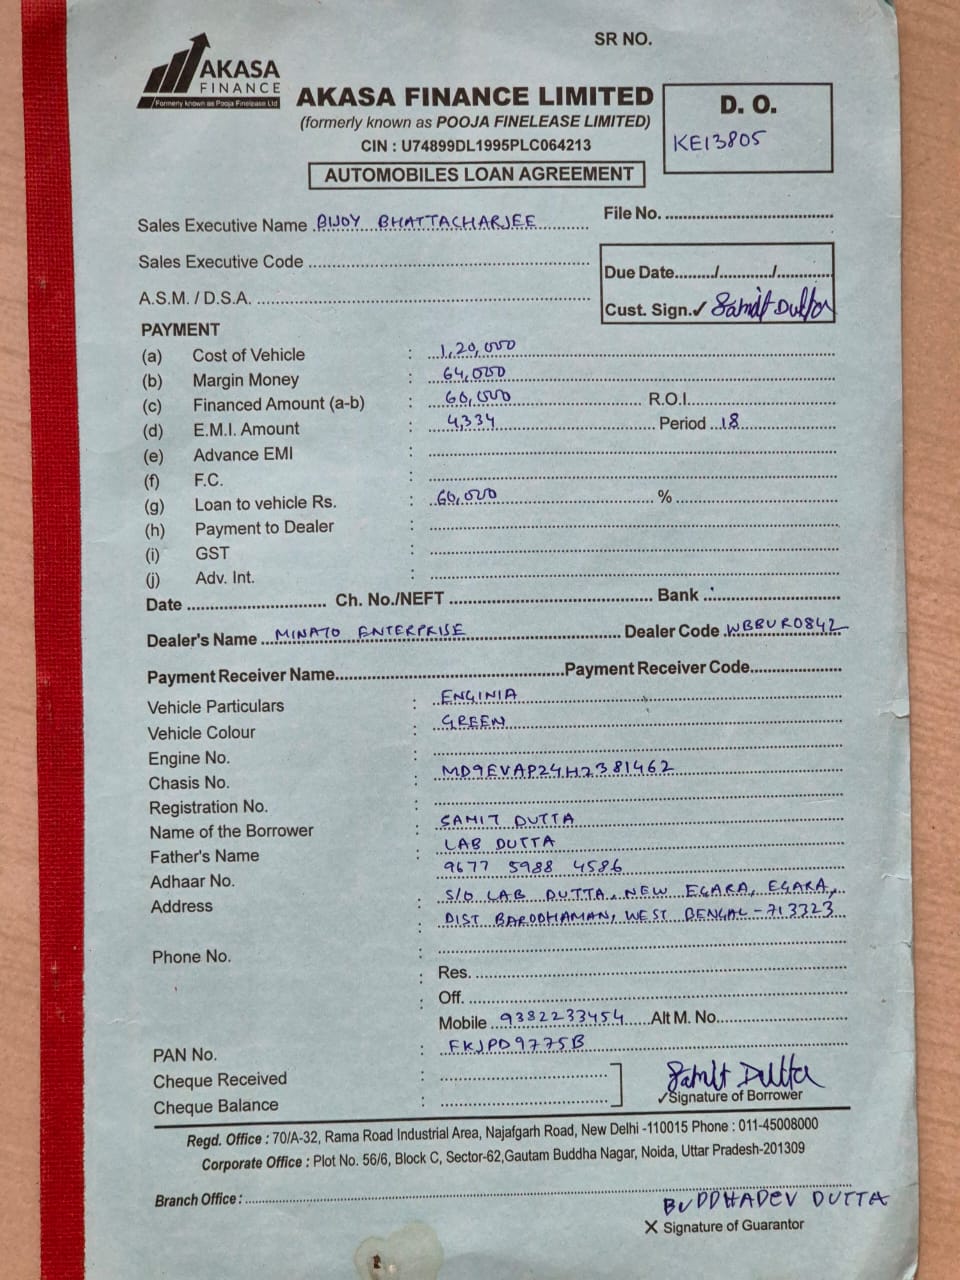 SR NO.
AKASA
FINANCE
Formerly known as Pooja Finelease Ltd
AKASA FINANCE LIMITED
(formerly known as POOJA FINELEASE LIMITED)
CIN : U74899DL1995PLC064213
AUTOMOBILES LOAN AGREEMENT
D. O.
KE13805
Sales Executive Name BIJOY BHATTACHARJEE
File No.
Sales Executive Code
A.S.M. / D.S.A.
Due Date......../.........../............
Cust. Sign.✓ Samit Dutta
PAYMENT
(a) Cost of Vehicle : 1,20,000
(b) Margin Money : 64,000
(c) Financed Amount (a-b) : 60,000 R.O.I.
(d) E.M.I. Amount : 4,334 Period 18
(e) Advance EMI :
(f) F.C. :
(g) Loan to vehicle Rs. : 60,000 %
(h) Payment to Dealer :
(i) GST :
(j) Adv. Int. :
Date Ch. No./NEFT Bank
Dealer's Name MINATO ENTERPRISE Dealer Code WBBUR0842
Payment Receiver Name Payment Receiver Code
Vehicle Particulars : ENGINIA
Vehicle Colour : GREEN
Engine No. :
Chasis No. : MD9EVAP24H2381462
Registration No. :
Name of the Borrower : SAMIT DUTTA
Father's Name : LAB DUTTA
Adhaar No. : 9677 5988 4586
Address : S/O LAB DUTTA, NEW EGARA, EGARA,
DIST BARDDHAMAN, WEST BENGAL-713323
Phone No. :
Res.
Off.
Mobile 9382233454 Alt M. No.
PAN No. : FKJPD9775B
Cheque Received :
Cheque Balance :
Samit Dutta
✓Signature of Borrower
Regd. Office : 70/A-32, Rama Road Industrial Area, Najafgarh Road, New Delhi -110015 Phone : 011-45008000
Corporate Office : Plot No. 56/6, Block C, Sector-62,Gautam Buddha Nagar, Noida, Uttar Pradesh-201309
Branch Office :
BUDDHADEV DUTTA
X Signature of Guarantor